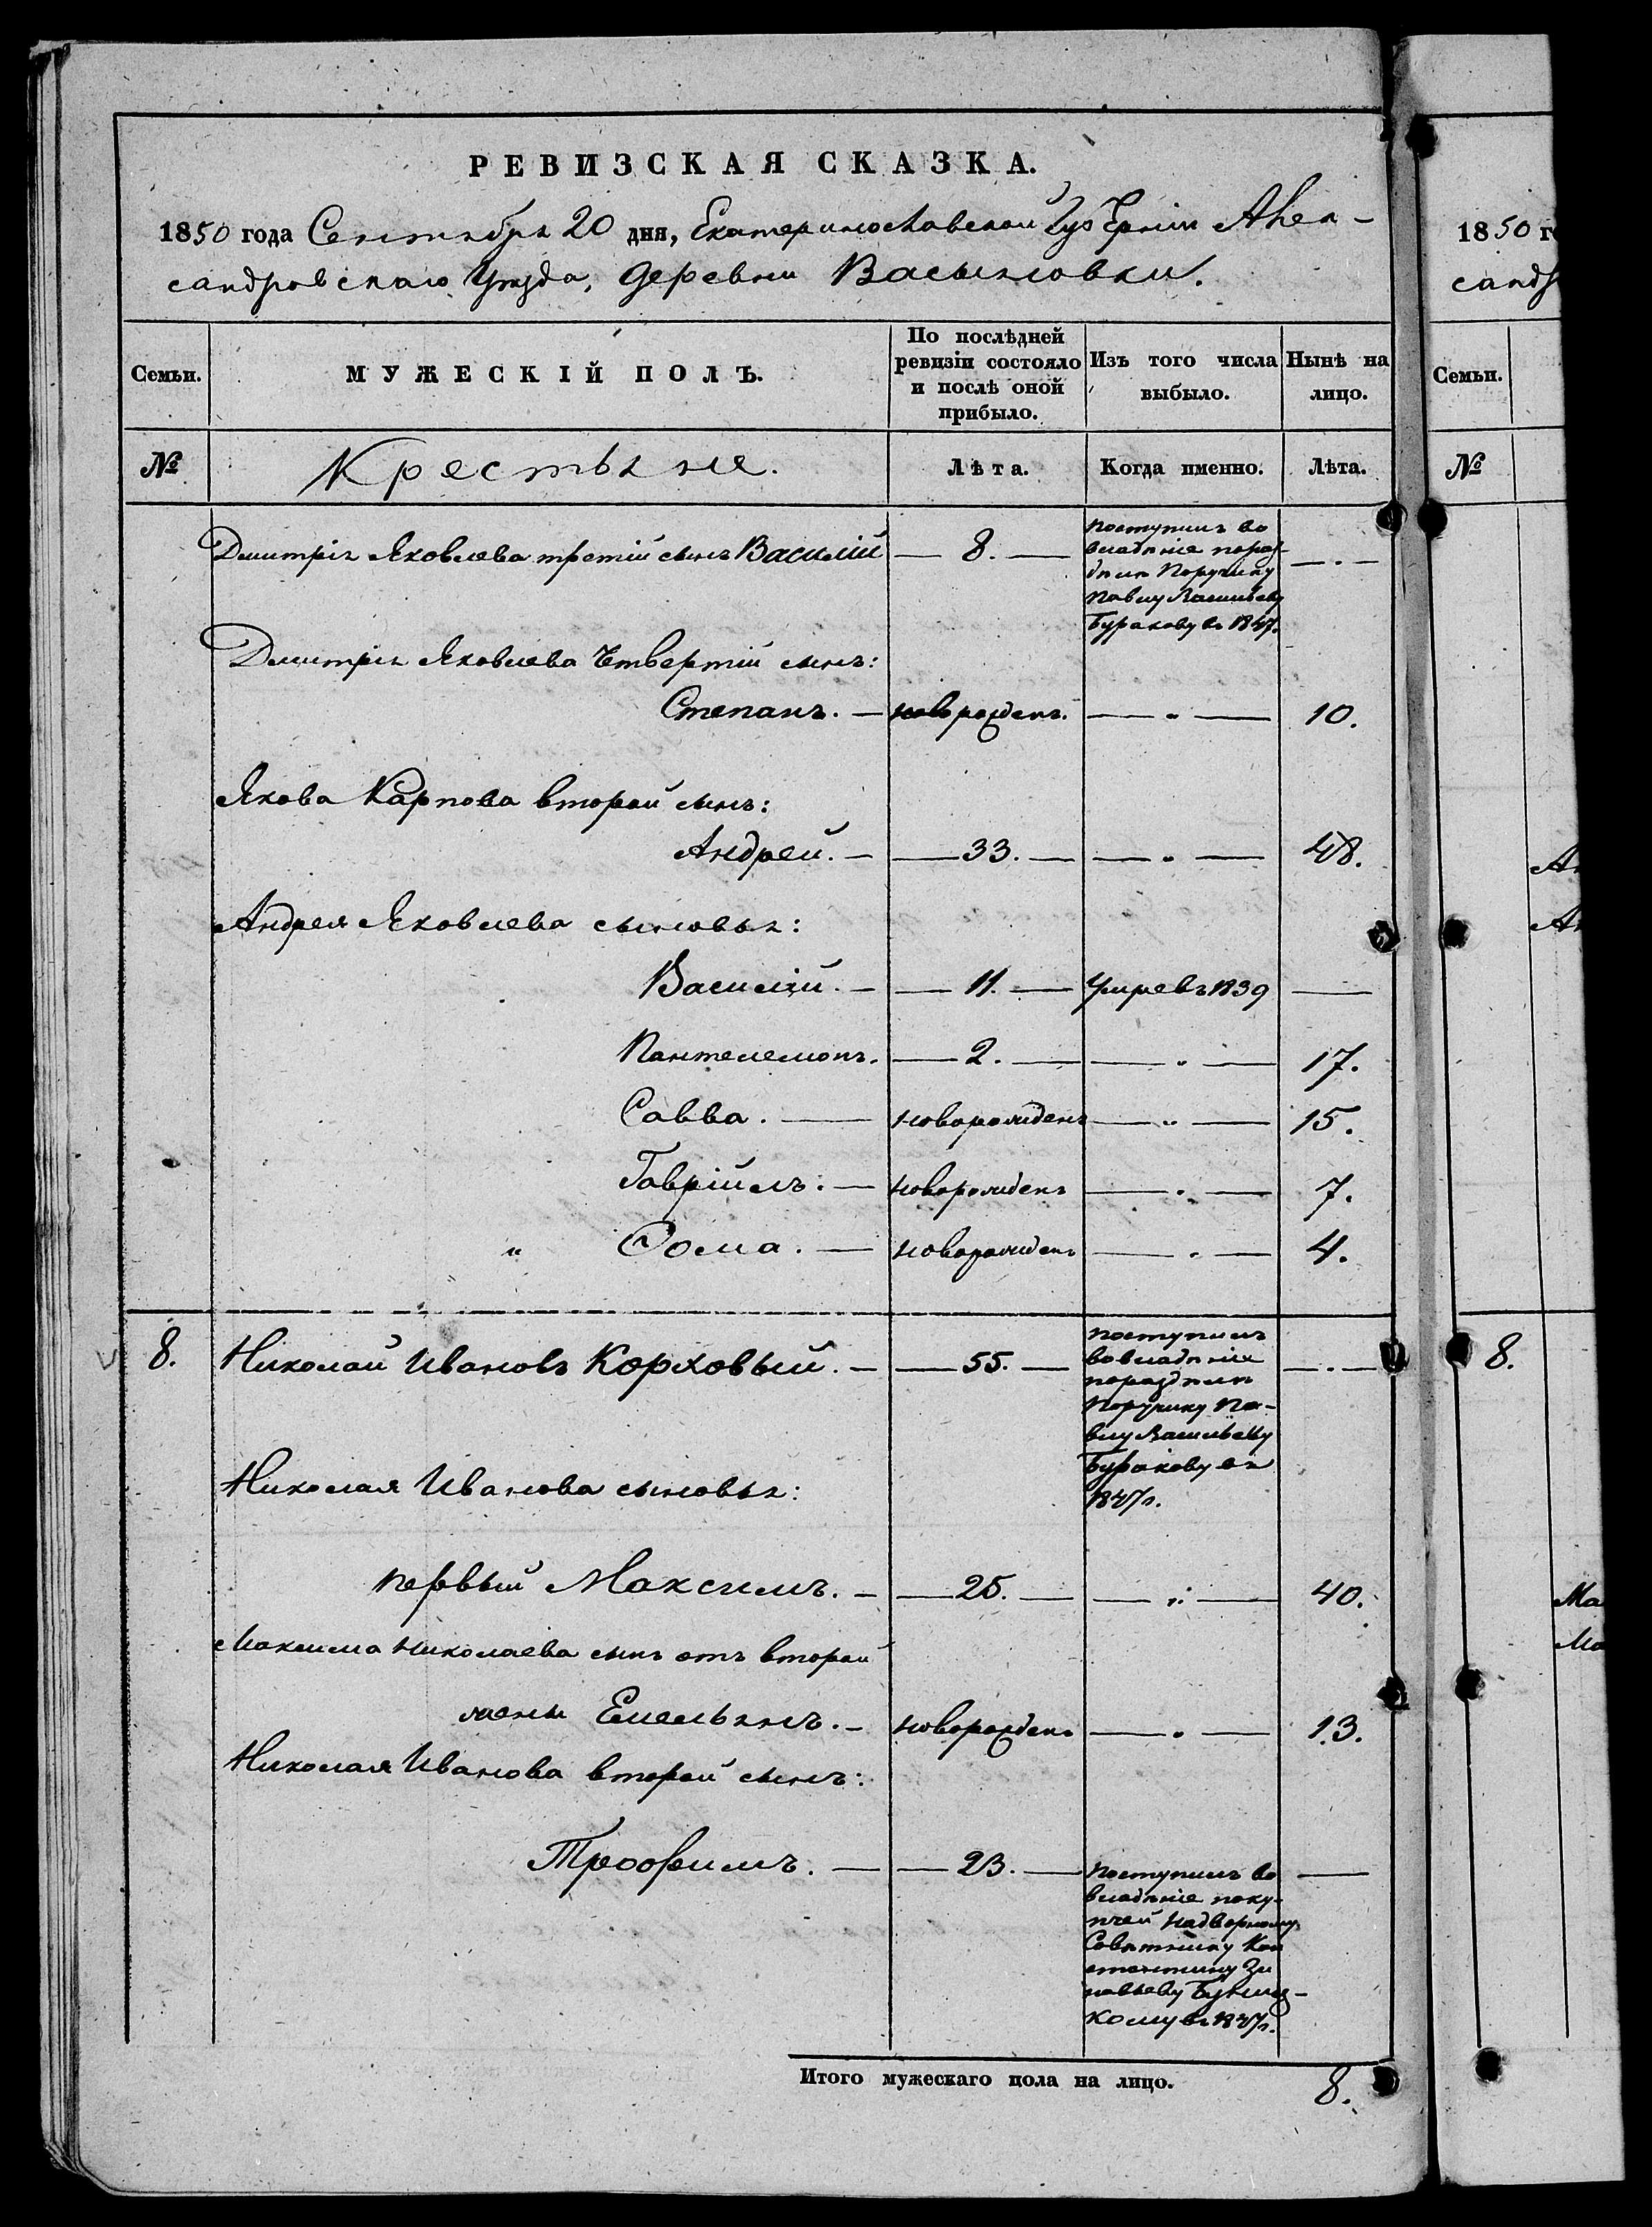 РЕВИЗСКАЯ СКАЗКА.
1850 года Сентября 20 дня, Екатеринославской Губерніи Алек-
сандровскаго Уѣзда, деревни Васильловки.
Семьи.
МУЖЕСКІЙ ПОЛЪ.
По послѣдней ревизіи состояло и послѣ оной прибыло.
Изъ того числа выбыло.
Нынѣ на лицо.
№ Крестьяне. Лѣта. Когда именно. Лѣта.
Дмитрія Яковлева третій сынъ Василій — 8. — — . —
поступилъ во
владѣніе по раз-
дѣлу Поручику
Павлу Васильеву
Буракову въ 1847.
Дмитрія Яковлева Четвертій сынъ:
Степанъ. — новорожденъ. — „ — 10.
Якова Карпова второй сынъ:
Андрей. — — 33. — — „ — 48.
Андрея Яковлева сыновья:
Василій. — — 11. — Умре въ 1839 —
Пантелемонъ. — 2. — — „ — 17.
Савва. — новорожденъ — „ — 15.
Гавріилъ. — новорожденъ — „ — 7.
„ Ѳома. — новорожденъ — „ — 4.
8. Николай Ивановъ Корховый. — — 55. — — . —
поступилъ
во владѣніе
по раздѣлу
Поручику Па-
влу Васильеву
Буракову въ
1847 г.
Николая Иванова сыновья:
первый Максимъ. — — 25. — — „ — 40.
Максима Николаева сынъ отъ второй
жены Емельянъ. — новорожденъ — „ — 13.
Николая Иванова второй сынъ:
Трофимъ. — — 23. — —
Поступилъ во
владѣніе поку-
пчей Надворному
Совѣтнику Кон
стантину Зи
новьеву
кому въ 1847 г.
Итого мужескаго пола на лицо. 8.
1850 г
санд
Семьи.
№
Ан
Ан
8.
Ма
Ма